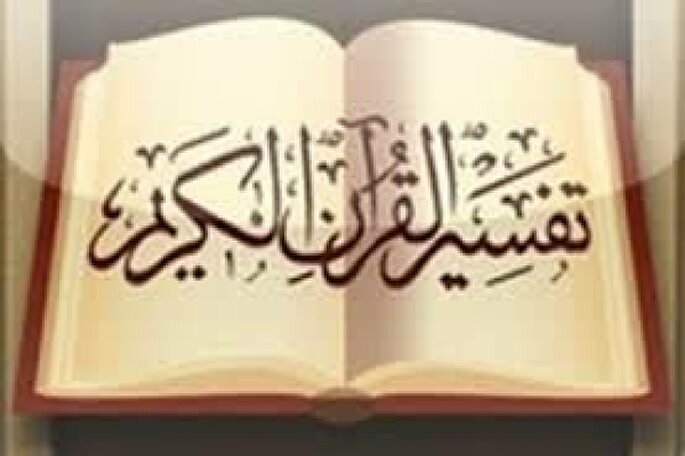 تفسير القرآن الكريم